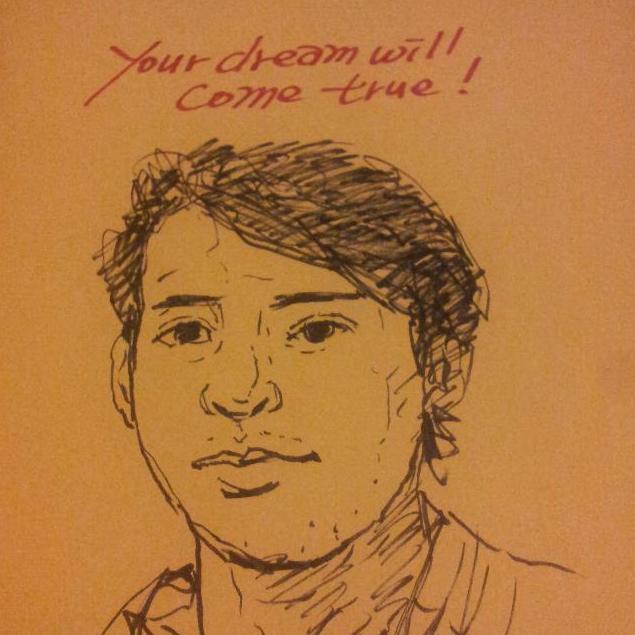 Your dream will
come true!